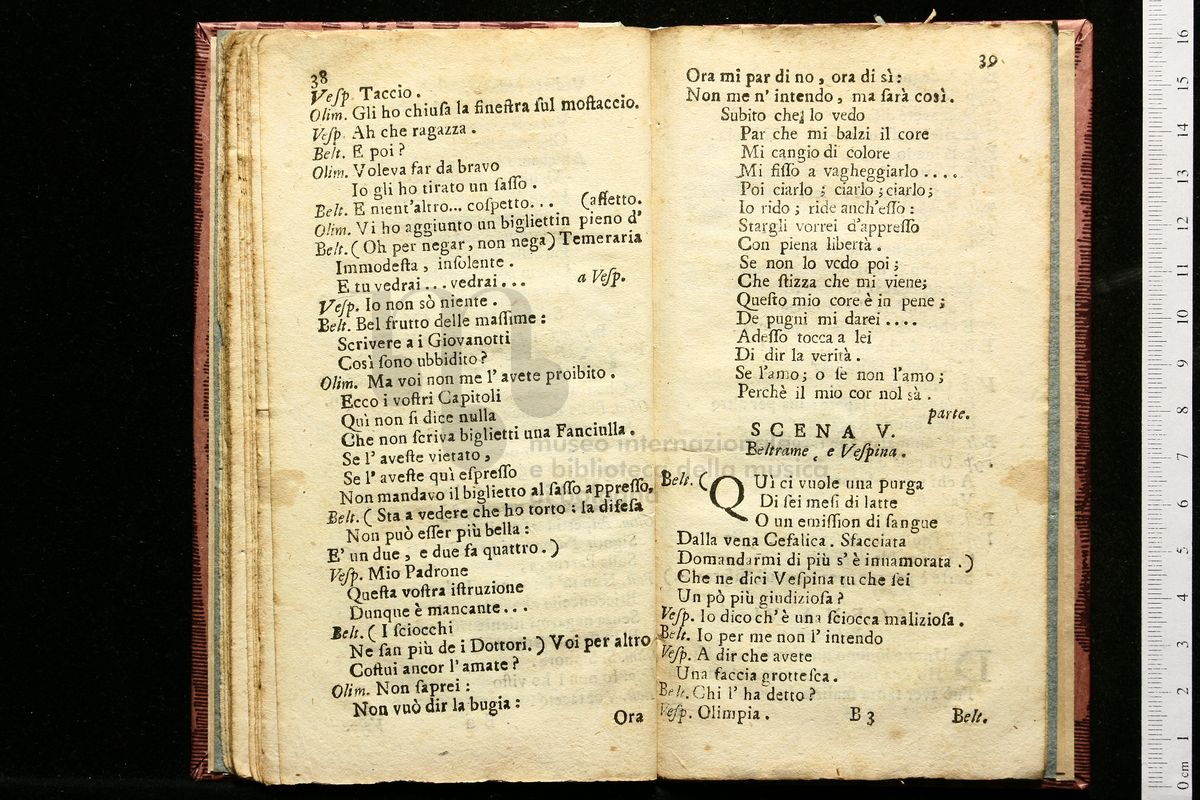 38
Veſp. Taccio.
Olim. Gli ho chiuſa la fineſtra ſul moſtaccio.
Veſp. Ah che ragazza.
Belt. E poi?
Olim. Voleva far da bravo
Io gli ho tirato un ſaſſo.
Belt. E nient'altro... coſpetto... (affetto.
Olim. Vi ho aggiunto un bigliettin pieno d'
Belt. (Oh per negar, non nega) Temeraria
Immodeſta, inſolente.
E tu vedrai... vedrai... a Veſp.
Veſp. Io non sò niente.
Belt. Bel frutto delle maſſime:
Scrivere a i Giovanotti
Così ſono ubbidito?
Olim. Ma voi non me l'avete proibito.
Ecco i voſtri Capitoli
Quì non ſi dice nulla
Che non ſcriva biglietti una Fanciulla.
Se l'aveſte vietato,
Se l'aveſte quì eſpreſſo
Non mandavo il biglietto al ſaſſo appreſſo.
Belt. (Sta a vedere che ho torto: la difeſa
Non può eſſer più bella:
E' un due, e due fa quattro.)
Veſp. Mio Padrone
Queſta voſtra iſtruzione
Dunque è mancante...
Belt. (I ſciocchi
Ne ſan più de i Dottori.) Voi per altro
Coſtui ancor l'amate?
Olim. Non ſaprei:
Non vuò dir la bugia:
Ora
39
Ora mi par di no, ora di sì:
Non me n'intendo, ma ſarà così.
Subito che lo vedo
Par che mi balzi il core
Mi cangio di colore
Mi fiſſo a vagheggiarlo....
Poi ciarlo; ciarlo; ciarlo;
Io rido; ride anch'eſſo:
Stargli vorrei d'appreſſo
Con piena libertà.
Se non lo vedo poi;
Che ſtizza che mi viene;
Queſto mio core è in pene;
De pugni mi darei....
Adeſſo tocca a lei
Di dir la verità.
Se l'amo; o ſe non l'amo;
Perchè il mio cor nol sà.
parte.
SCENA V.
Beltrame, e Veſpina.
Belt. (QUì ci vuole una purga
Di ſei meſi di latte
O un emiſſion di ſangue
Dalla vena Cefalica. Sfacciata
Domandarmi di più s'è innamorata.)
Che ne dici Veſpina tu che ſei
Un pò più giudizioſa?
Veſp. Io dico ch'è una ſciocca malizioſa.
Belt. Io per me non l'intendo
Veſp. A dir che avete
Una faccia grotteſca.
Belt. Chi l'ha detto?
Veſp. Olimpia.
B 3 Belt.
museo internazionale
e biblioteca della musica
0 cm 1 2 3 4 5 6 7 8 9 10 11 12 13 14 15 16